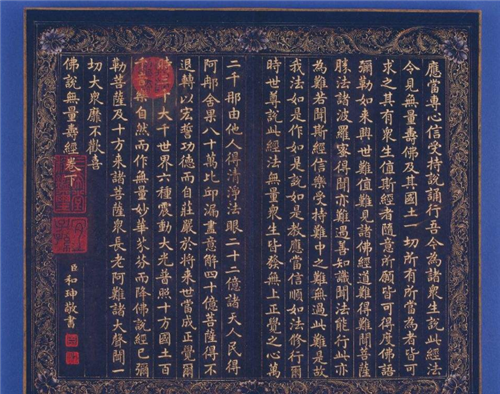 應當專心信受持誦說行吾今為諸衆生說此經法
令見無量壽佛及其國土一切所有所當為者皆可
求之其有衆生值斯經者隨意所願皆可得度佛語
彌勒如來興世難值難見諸佛經道難得難聞菩薩
勝法諸波羅蜜得聞亦難遇善知識聞法能行此亦
為難若聞斯經信樂受持難中之難無過此難是故
我法如是作如是說如是教應當信順如法修行爾
時世尊說此經法無量衆生皆發無上正覺之心萬
二千那由他人得清淨法眼二十二億諸天人民得
阿那含果八十萬比邱漏盡意解四十億菩薩得不
退轉以宏誓功德而自莊嚴於將來世當成正覺爾
時三千大千世界六種震動大光普照十方國土百
千音樂自然而作無量妙華芬芬而降佛說經已彌
勒菩薩及十方來諸菩薩衆長老阿難諸大聲聞一
切大衆靡不歡喜
佛說無量壽經卷下
臣和珅敬書